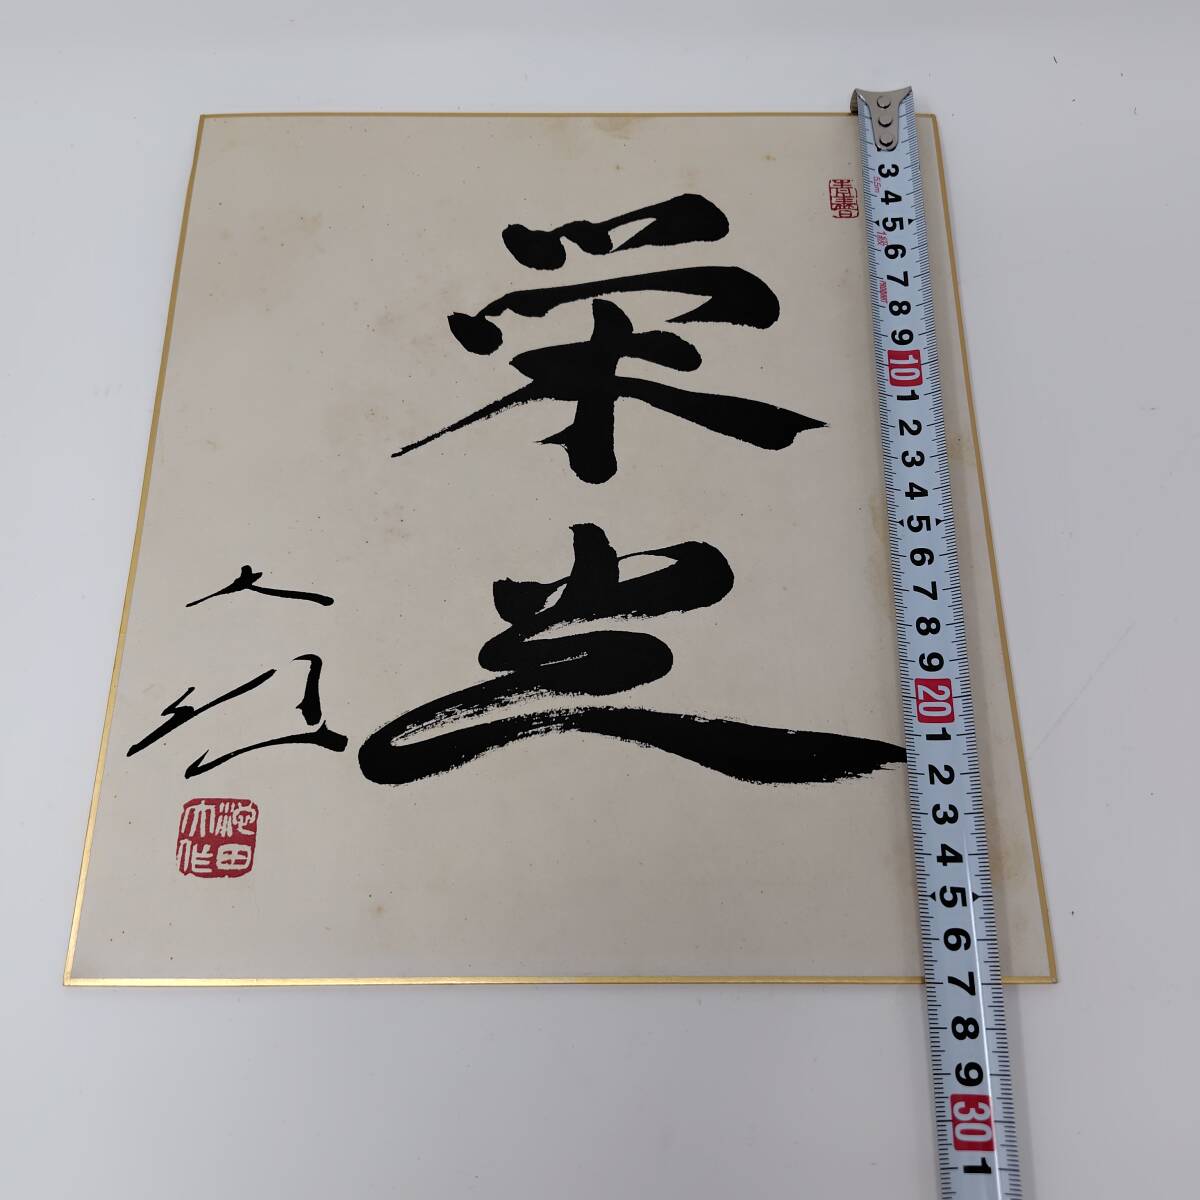 栄光
大作
池田
大作
3
4
5
6
7
8
9
10
1
2
3
4
5
6
7
8
9
20
1
2
3
4
5
6
7
8
9
30
1
5.5m
1級